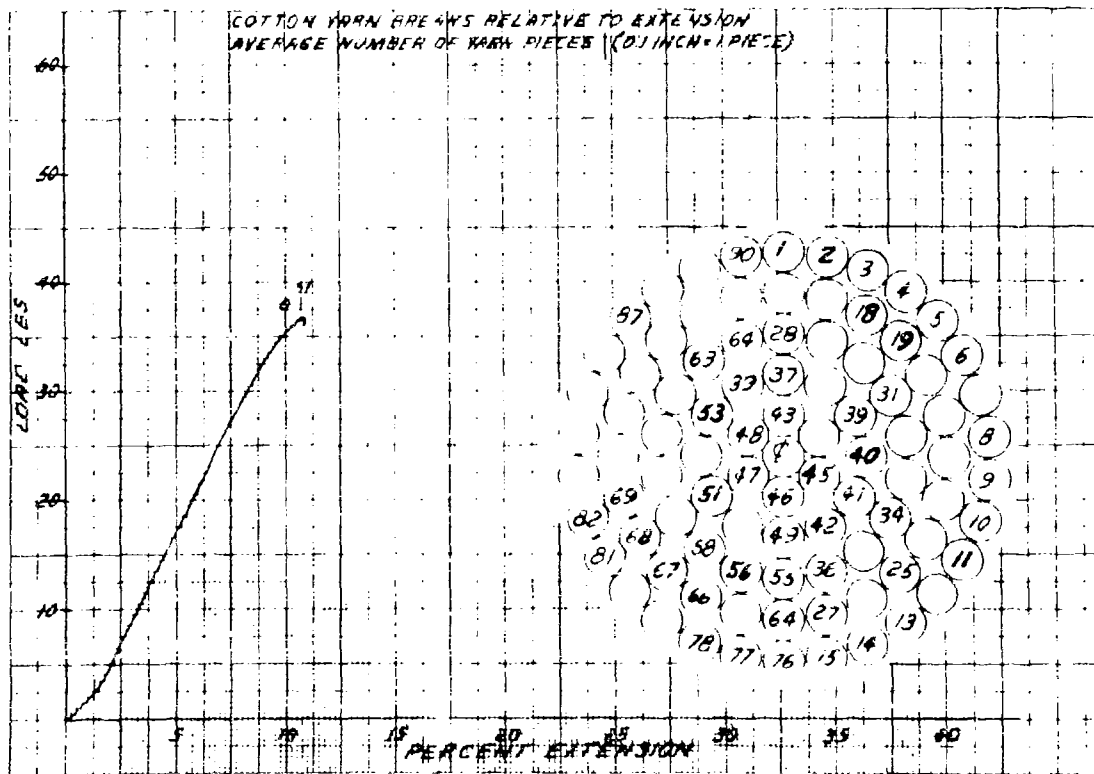 COTTON YARN BREAKS RELATIVE TO EXTENSION
AVERAGE NUMBER OF YARN PIECES (0.1 INCH = 1 PIECE)
60
50
40
30
20
10
LOAD LBS
5 10 15 20 25 30 35 40
PERCENT EXTENSION
90 1 2 3
4
5
87 18
64 28 19
63 6
33 37
31
53 43 39
48 8
¢ 40
47 45 9
69 51 46 41
82 34 10
68 49 42
81 58 11
67 56 55 36 25
66
64 27 13
78 77 76 15 14